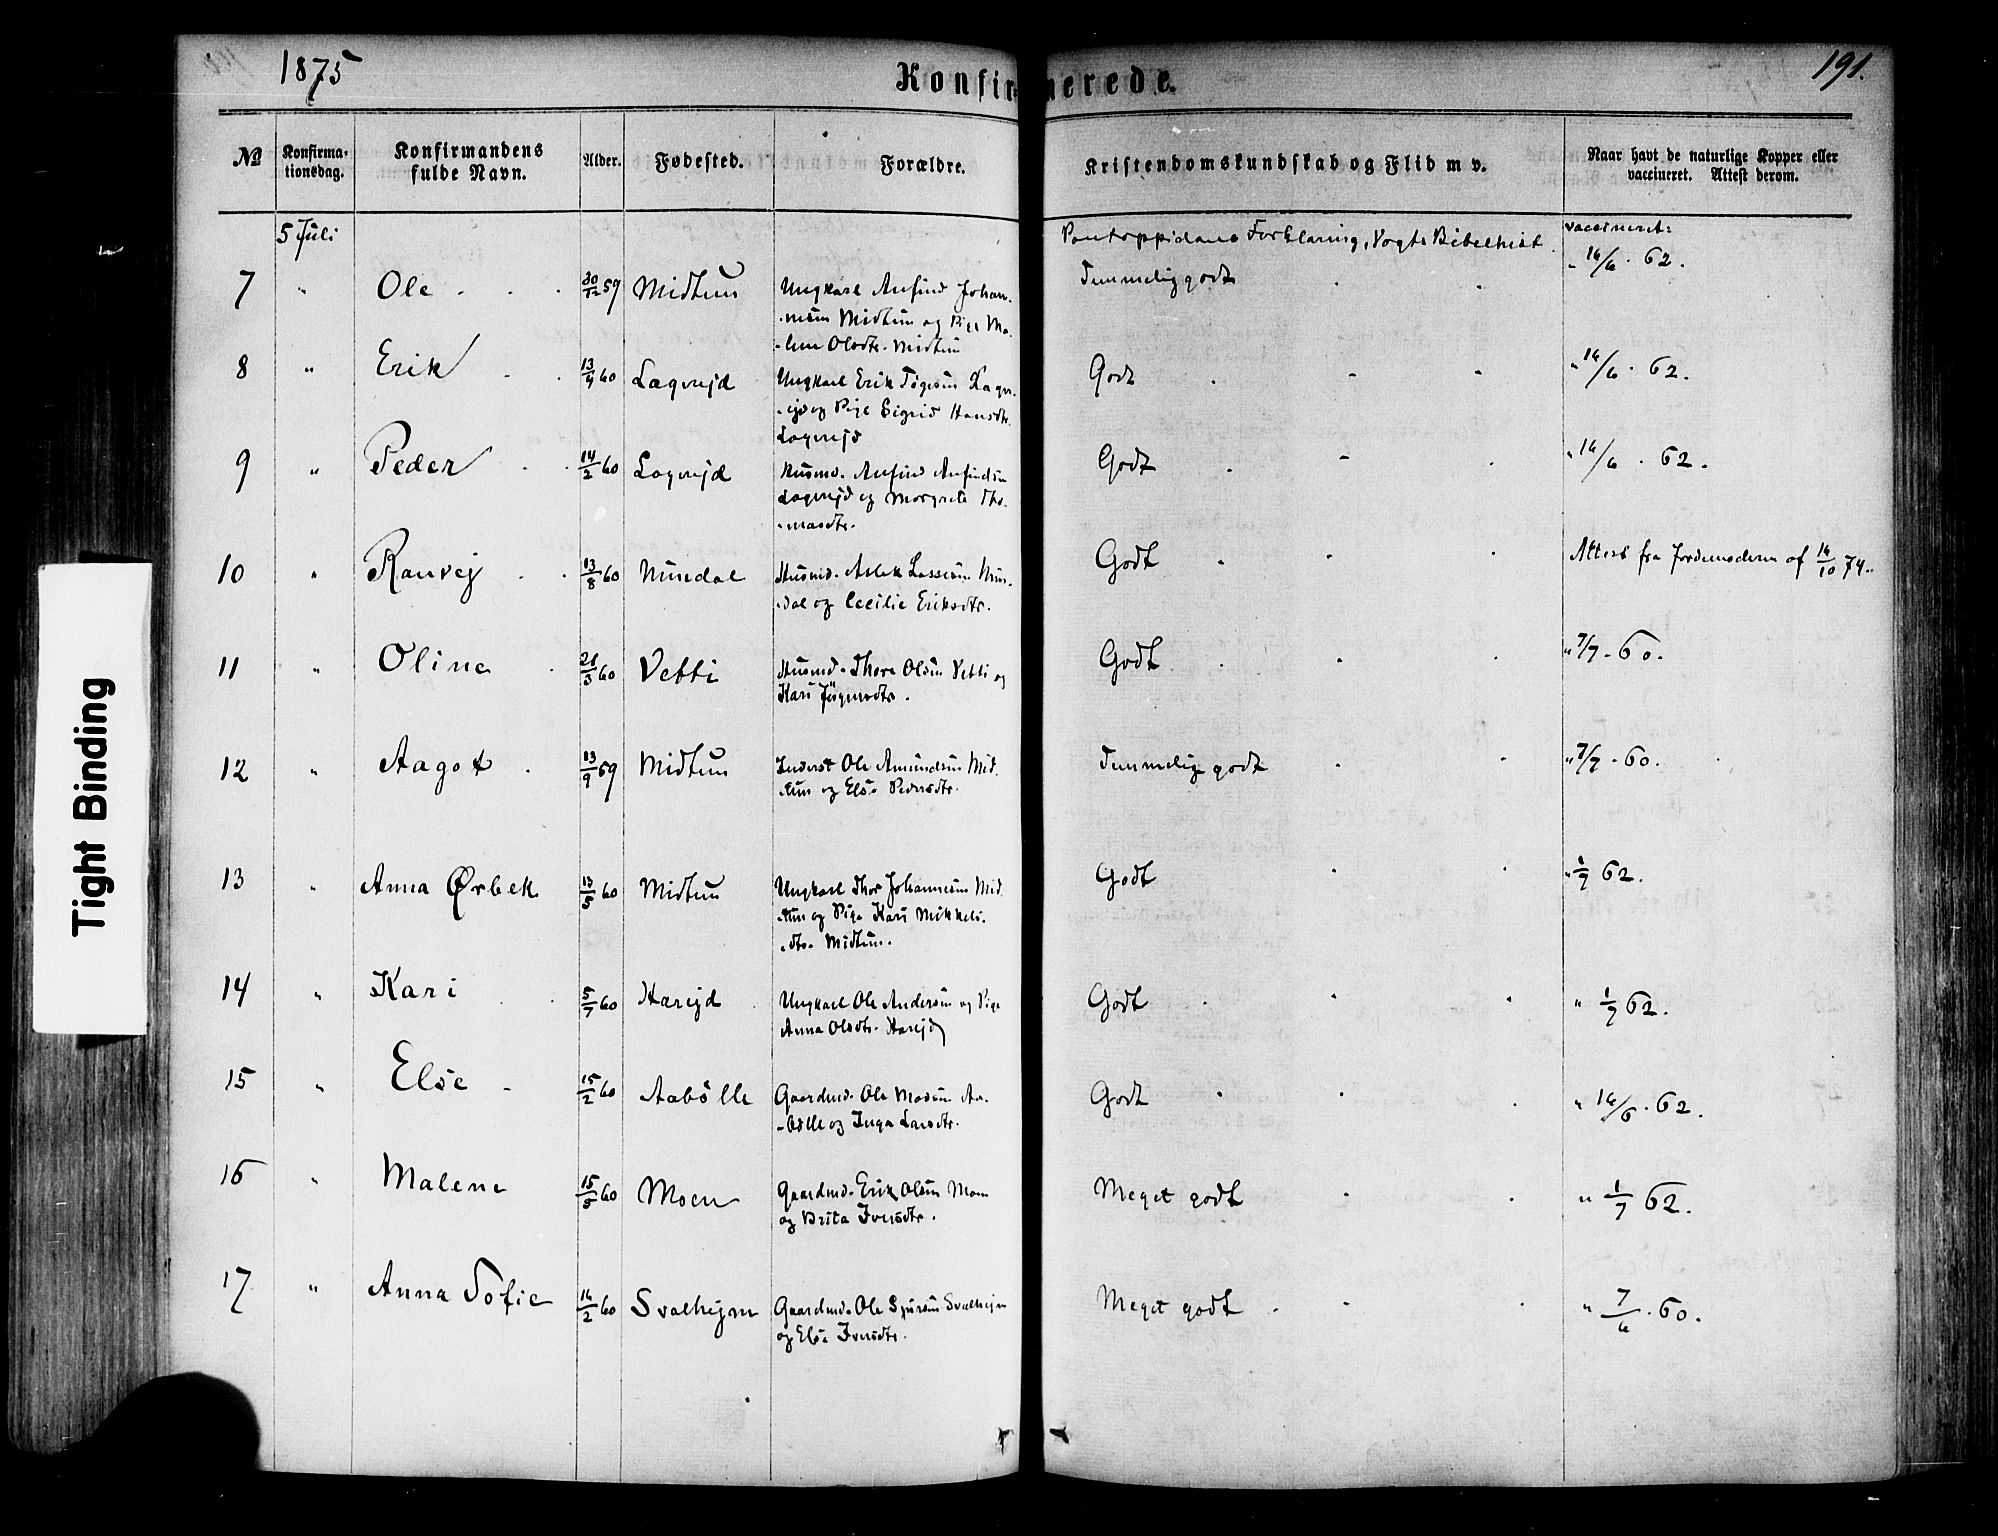 1875
Konfirmerede.
191.
№ Konfirma-tionsdag. Konfirmandens fulde Navn. Alder. Fødested. Forældre. Kristendomskundskab og Flid m v. Naar havt de naturlige Kopper eller vaccineret. Attest derom.
5 Juli Pontoppidans Forklaring, Vogts Bibelhist. vaccineret:
7 " Ole 30/12 59 Midtun Ungkarl Anfind Johan- Temmelig godt " 16/6. 62.
-nesen Midtun og Pige Ma-
-lene Olsdtr. Midtun
8 " Erik 13/4 60 Lægrejd Ungkarl Erik Lægr- Godt " 16/6. 62.
-ejd og Pige Sigrid Hansdtr.
Lægrejd
9 " Peder 14/2 60 Lægrejd Husmd. Anfind Anfindsen Godt " 16/6. 62.
Lægrejd og Margrete Tho-
-masdtr.
10 " Ranvej 13/8 60 Mundal Husmd. Aslak Lassesen Mun- Godt Attest fra Jordemoderen af 16/10 74.
-dal og Cecilie Eriksdtr.
11 " Oline 21/3 60 Vetti Husmd. Thore Olsen Vetti og Godt " 7/7. 60.
Kari Jørgensdtr.
12 " Aagot 13/9 59 Midtun Inderst Ole Amundsen Mid- Temmelig godt " 7/7. 60.
-tun og Else Pedersdtr.
13 " Anna Ørbek 13/5 60 Midtun Ungkarl Thor Johannesen Mid- Godt " 1/7 62.
-tun og Pige Kari Mikkels-
-dtr. Midtun.
14 " Kari 5/7 60 Harejd Ungkarl Ole Andersen og Pige Godt " 1/7 62.
Anna Olsdtr. Harejd
15 " Else 15/2 60 Aabölle Gaardmd. Ole Madsen Aa- Godt " 16/6. 62.
-bölle og Inga Larsdtr.
16 " Malene 15/5 60 Moen Gaardmd. Erik Olsen Moen Meget godt " 1/7 62.
og Brita Iversdtr.
17 " Anna Sofie 16/2 60 Svalhejm Gaardmd. Ole Sjursen Svalhejm Meget godt " 7/6. 60.
og Else Iversdtr.
Tight Binding